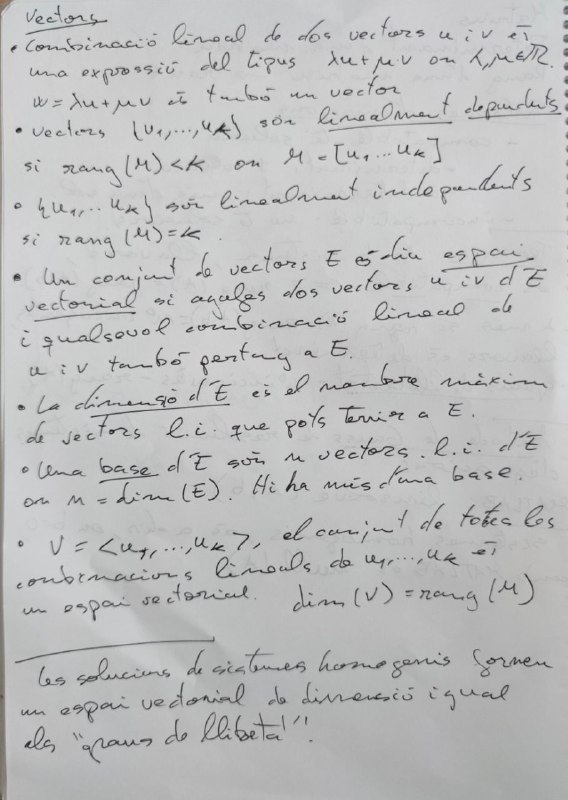 Vectors
• Combinació lineal de dos vectors u i v és
una expressió del tipus λu+μv on λ,μ∈ℝ.
w = λu+μv és també un vector
• vectors {u1,...,uK} són linealment dependents
si rang(M)<K on M=[u1...uK]
• {u1,...uK} són linealment independents
si rang(M)=K.
• Un conjunt de vectors E és diu espai
vectorial si agafes dos vectors u i v d'E
i qualsevol combinació lineal de
u i v també pertany a E.
• La dimensió d'E és el nombre màxim
de vectors l.i. que pots tenir a E.
• Una base d'E són n vectors l.i. d'E
on n = dim(E). Hi ha més d'una base.
• V = <u1,...,uK>, el conjunt de totes les
combinacions lineals de u1,...,uK és
un espai vectorial. dim(V)=rang(M)
Les solucions de sistemes homogenis formen
un espai vectorial de dimensió igual
als "graus de llibertat".